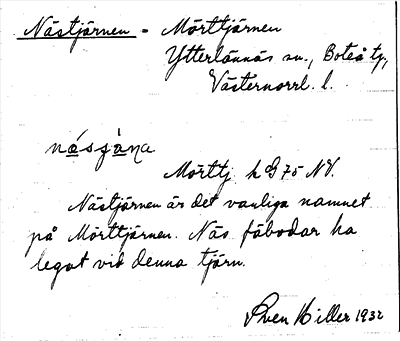 Nästjärnen - Mörttjärnen
Ytterlännäs sn., Boteå tg.,
Västernorrl. l.
Mörttj. k G 75 NV.
Nästjärnen är det vanliga namnet
på Mörttjärnen. Näs fäbodar ha
legat vid denna tjärn.
Sven Hiller 1932